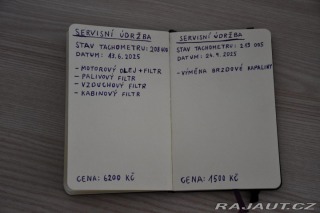 SERVISNÍ ÚDRŽBA
STAV TACHOMETRU: 208 000
DATUM: 13.6.2025
- MOTOROVÝ OLEJ + FILTR
- PALIVOVÝ FILTR
- VZDUCHOVÝ FILTR
- KABINOVÝ FILTR
CENA: 6200 KČ
SERVISNÍ ÚDRŽBA
STAV TACHOMETRU: 213 005
DATUM: 24.9.2025
- VÝMĚNA BRZDOVÉ KAPALINY
CENA: 1500 KČ
RAJAUT.CZ